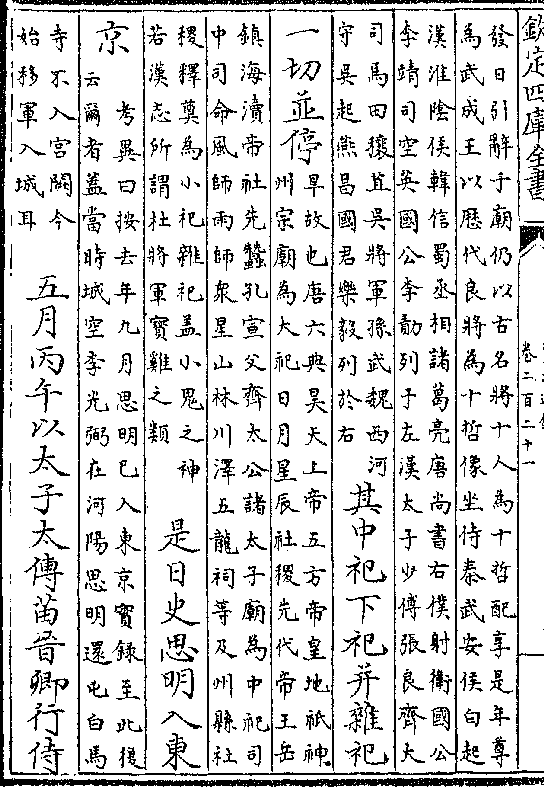 欽定四庫全書
卷二百二十一
發日引辭于廟仍以古名將十人為十哲配享是年尊
為武成王以歷代良將為十哲像坐侍秦武安侯白起
漢淮陰侯韓信蜀丞相諸葛亮唐尚書右僕射衛國公
李靖司空英國公李勣列于左漢太子少傅張良齊大
司馬田穰苴吳將軍孫武魏西河
守吳起燕昌國君樂毅列於右
其中祀下祀并雜祀
一切並停
旱故也唐六典昊天上帝五方帝皇地祇神
州宗廟為大祀日月星辰社稷先代帝王岳
鎮海瀆帝社先蠶孔宣父齊太公諸太子廟為中祀司
中司命風師雨師衆星山林川澤五龍祠等及州縣社
稷釋奠為小祀雜祀蓋小鬼之神
若漢志所謂杜將軍寶雞之類
是日史思明入東
京
考異曰按去年九月思明已入東京實錄至此復
云爾者蓋當時城空李光弼在河陽思明還屯白馬
寺不入宮闕今
始移軍入城耳
五月丙午以太子太傅苗晉卿行侍